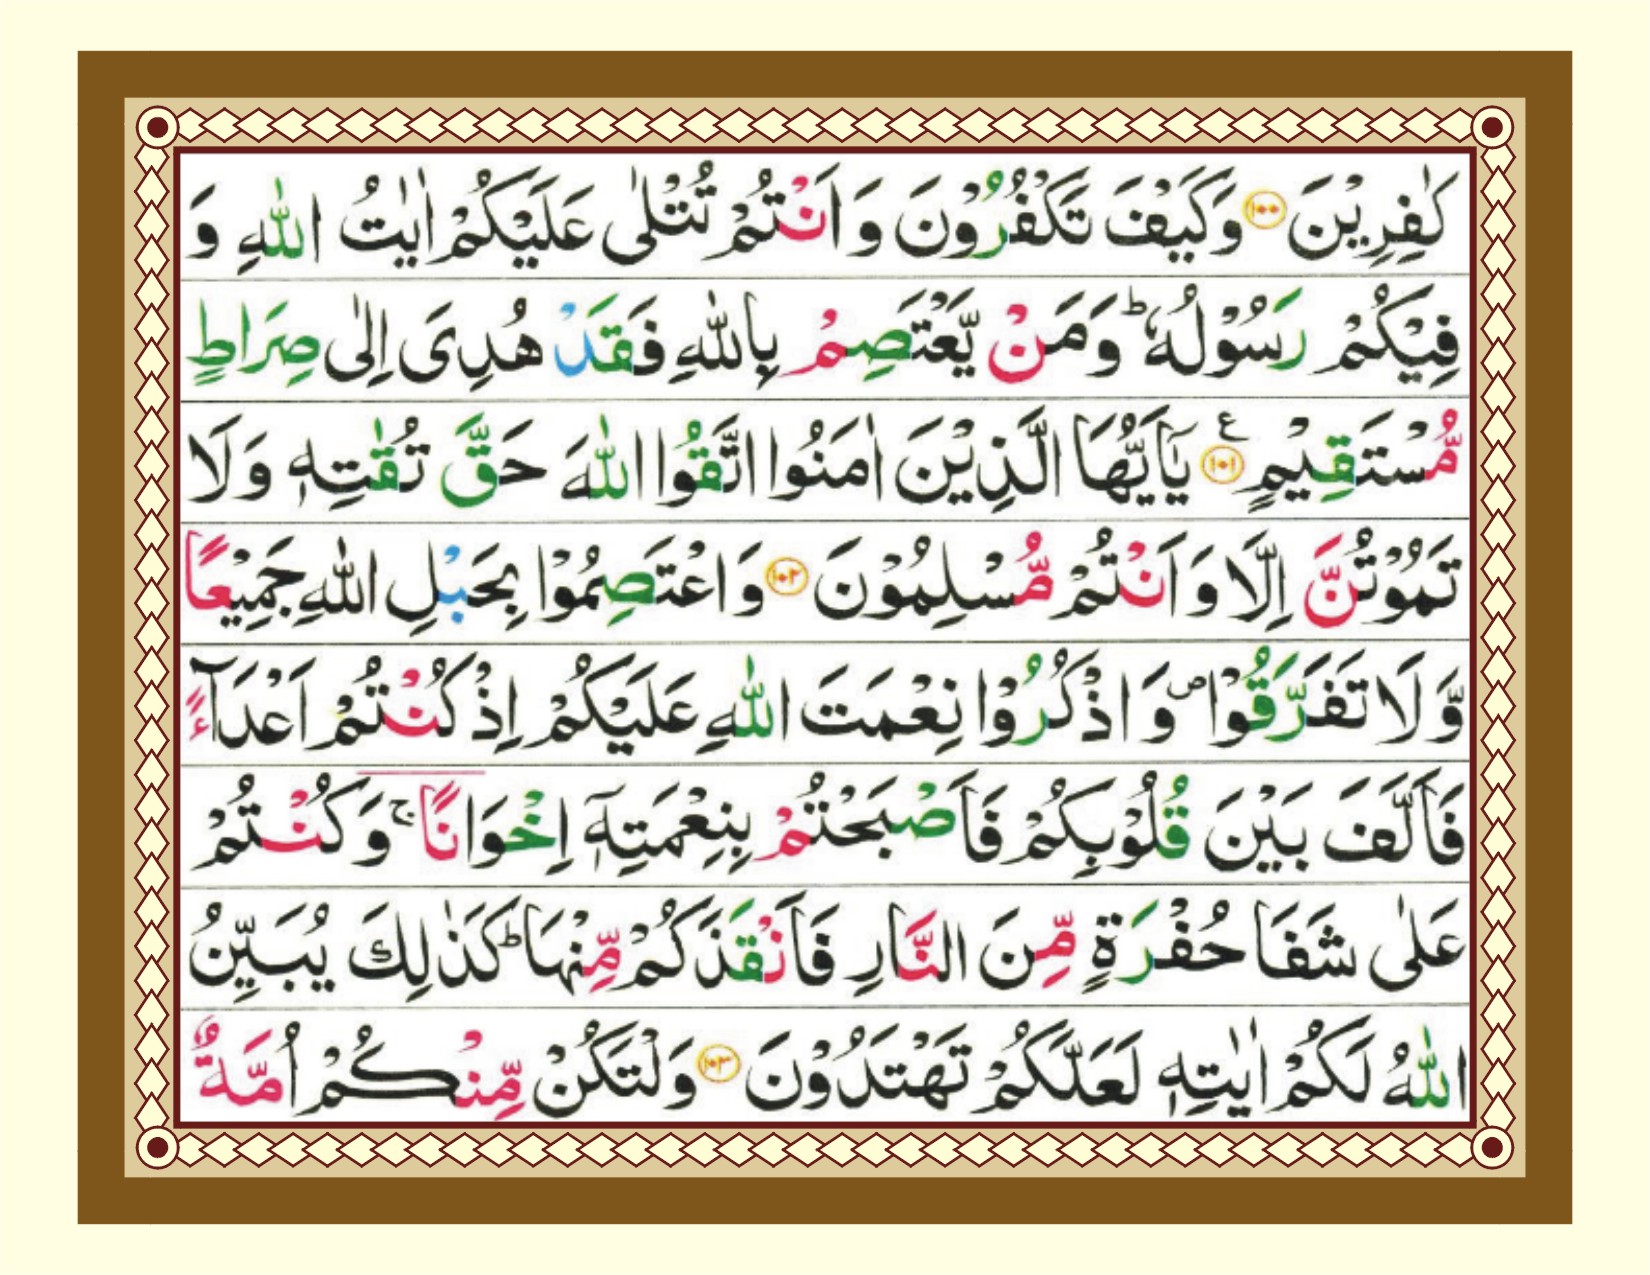 كٰفِرِيْنَ ﴿۱۰۰﴾ وَكَيْفَ تَكْفُرُوْنَ وَ اَنْتُمْ تُتْلٰى عَلَيْكُمْ اٰيٰتُ اللّٰهِ وَ
فِيْكُمْ رَسُوْلُهٗ ؕ وَمَنْ يَّعْتَصِمْ بِاللّٰهِ فَقَدْ هُدِىَ اِلٰى صِرَاطٍ
مُّسْتَقِيْمٍ ﴿۱۰۱﴾ ع يٰۤاَيُّهَا الَّذِيْنَ اٰمَنُوا اتَّقُوا اللّٰهَ حَقَّ تُقٰتِهٖ وَلَا
تَمُوْتُنَّ اِلَّا وَ اَنْتُمْ مُّسْلِمُوْنَ ﴿۱۰۲﴾ وَ اعْتَصِمُوْا بِحَبْلِ اللّٰهِ جَمِيْعًا
وَّ لَا تَفَرَّقُوْا ۪ وَ اذْكُرُوْا نِعْمَتَ اللّٰهِ عَلَيْكُمْ اِذْ كُنْتُمْ اَعْدَآءً
فَاَلَّفَ بَيْنَ قُلُوْبِكُمْ فَاَصْبَحْتُمْ بِنِعْمَتِهٖۤ اِخْوَانًا ۚ وَكُنْتُمْ
عَلٰى شَفَا حُفْرَةٍ مِّنَ النَّارِ فَاَنْقَذَكُمْ مِّنْهَا ؕ كَذٰلِكَ يُبَيِّنُ
اللّٰهُ لَكُمْ اٰيٰتِهٖ لَعَلَّكُمْ تَهْتَدُوْنَ ﴿۱۰۳﴾ وَلْتَكُنْ مِّنْكُمْ اُمَّةٌ